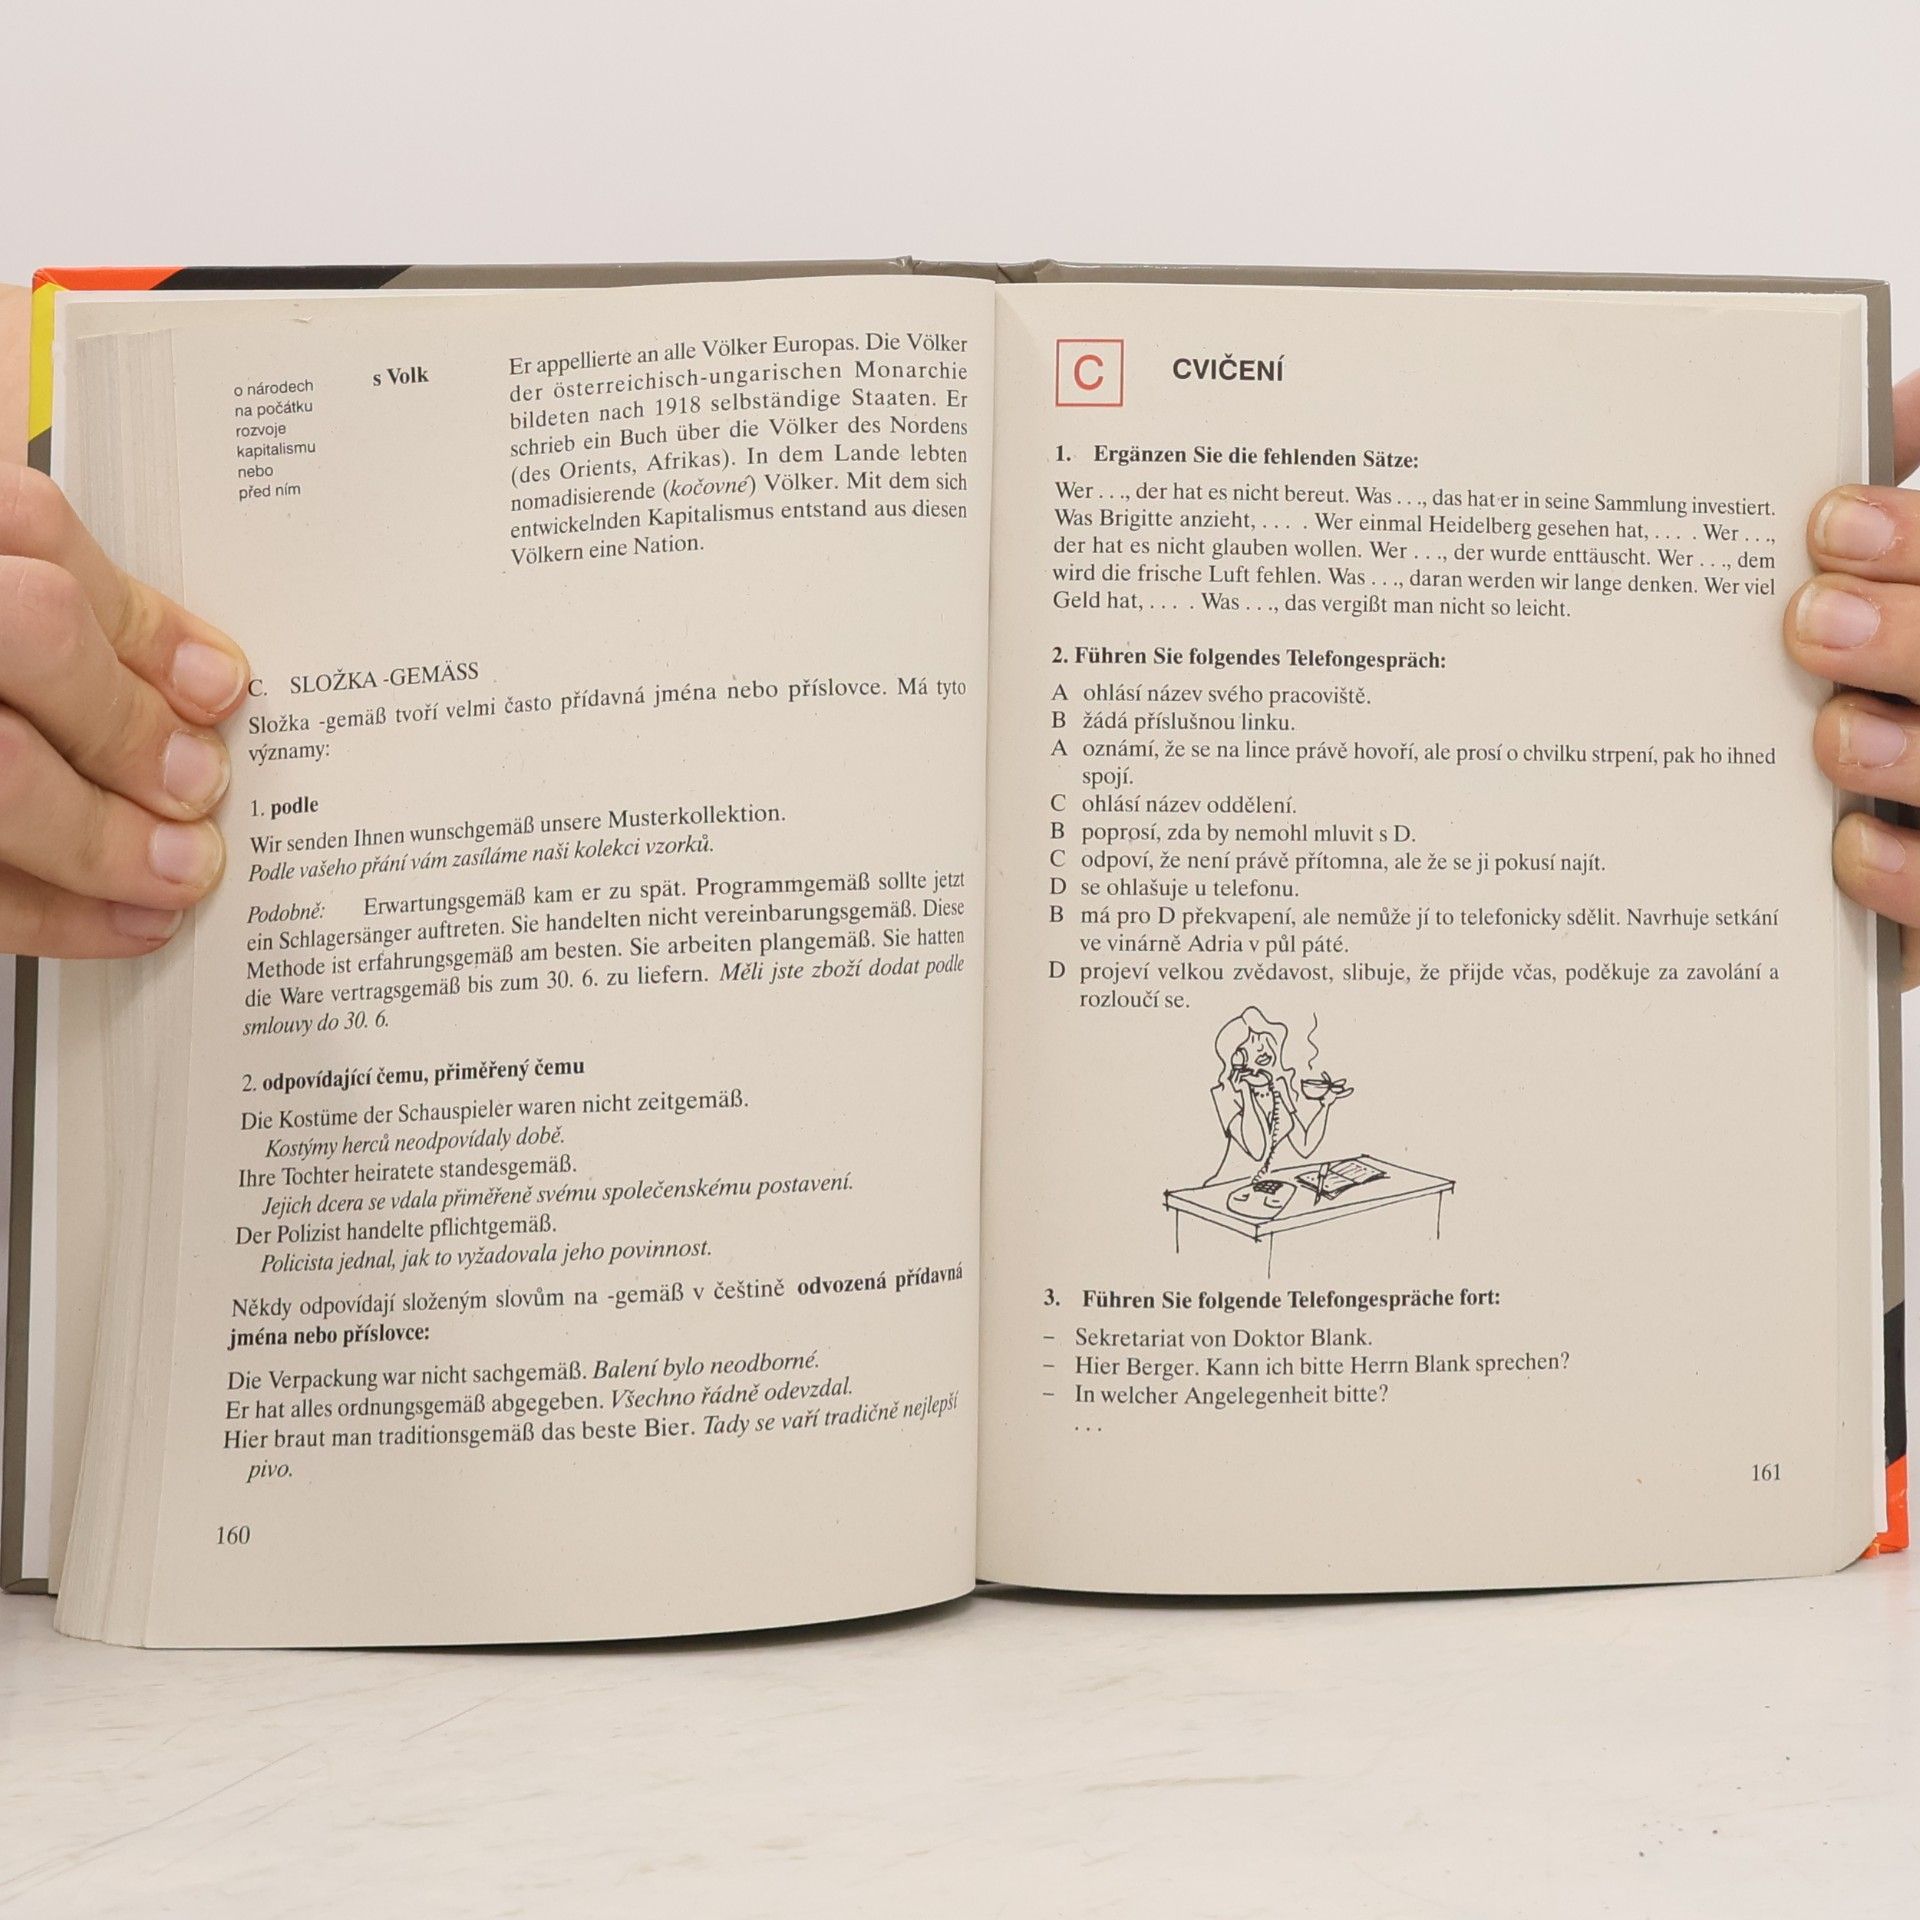 o národech
na počátku
rozvoje
kapitalismu
nebo
před ním
s Volk
Er appellierte an alle Völker Europas. Die Völker
der österreichisch-ungarischen Monarchie
bildeten nach 1918 selbständige Staaten. Er
schrieb ein Buch über die Völker des Nordens
(des Orients, Afrikas). In dem Lande lebten
nomadisierende (kočovné) Völker. Mit dem sich
entwickelnden Kapitalismus entstand aus diesen
Völkern eine Nation.
C. SLOŽKA -GEMÄSS
Složka -gemäß tvoří velmi často přídavná jména nebo příslovce. Má tyto
významy:
1. podle
Wir senden Ihnen wunschgemäß unsere Musterkollektion.
Podle vašeho přání vám zasíláme naši kolekci vzorků.
Podobně: Erwartungsgemäß kam er zu spät. Programmgemäß sollte jetzt
ein Schlagersänger auftreten. Sie handelten nicht vereinbarungsgemäß. Diese
Methode ist erfahrungsgemäß am besten. Sie arbeiten plangemäß. Sie hatten
die Ware vertragsgemäß bis zum 30. 6. zu liefern. Měli jste zboží dodat podle
smlouvy do 30. 6.
2. odpovídající čemu, přiměřený čemu
Die Kostüme der Schauspieler waren nicht zeitgemäß.
Kostýmy herců neodpovídaly době.
Ihre Tochter heiratete standesgemäß.
Jejich dcera se vdala přiměřeně svému společenskému postavení.
Der Polizist handelte pflichtgemäß.
Policista jednal, jak to vyžadovala jeho povinnost.
Někdy odpovídají složeným slovům na -gemäß v češtině odvozená přídavná
jména nebo příslovce:
Die Verpackung war nicht sachgemäß. Balení bylo neodborné.
Er hat alles ordnungsgemäß abgegeben. Všechno řádně odevzdal.
Hier braut man traditionsgemäß das beste Bier. Tady se vaří tradičně nejlepší
pivo.
160
C CVIČENÍ
1. Ergänzen Sie die fehlenden Sätze:
Wer . . ., der hat es nicht bereut. Was . . ., das hat er in seine Sammlung investiert.
Was Brigitte anzieht, . . . . Wer einmal Heidelberg gesehen hat, . . . . Wer . . .,
der hat es nicht glauben wollen. Wer . . ., der wurde enttäuscht. Wer . . ., dem
wird die frische Luft fehlen. Was . . ., daran werden wir lange denken. Wer viel
Geld hat, . . . . Was . . ., das vergißt man nicht so leicht.
2. Führen Sie folgendes Telefongespräch:
A ohlásí název svého pracoviště.
B žádá příslušnou linku.
A oznámí, že se na lince právě hovoří, ale prosí o chvilku strpení, pak ho ihned
spojí.
C ohlásí název oddělení.
B poprosí, zda by nemohl mluvit s D.
C odpoví, že není právě přítomna, ale že se ji pokusí najít.
D se ohlašuje u telefonu.
B má pro D překvapení, ale nemůže jí to telefonicky sdělit. Navrhuje setkání
ve vinárně Adria v půl páté.
D projeví velkou zvědavost, slibuje, že přijde včas, poděkuje za zavolání a
rozloučí se.
3. Führen Sie folgende Telefongespräche fort:
– Sekretariat von Doktor Blank.
– Hier Berger. Kann ich bitte Herrn Blank sprechen?
– In welcher Angelegenheit bitte?
. . .
161